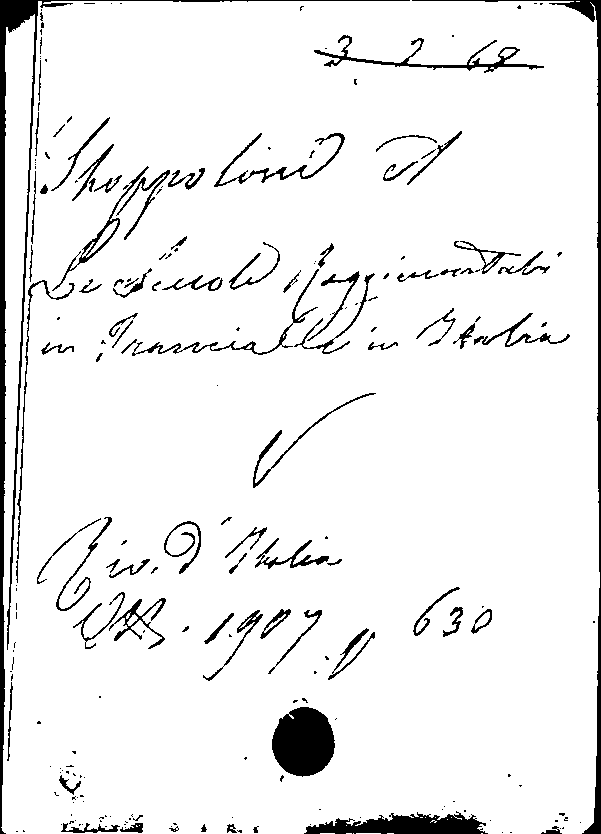 3 2 68
Stoppoloni A
Le Scuole Reggimentali
in Francia ed in Italia
Riv. d'Italia
Ott. 1907 p 630